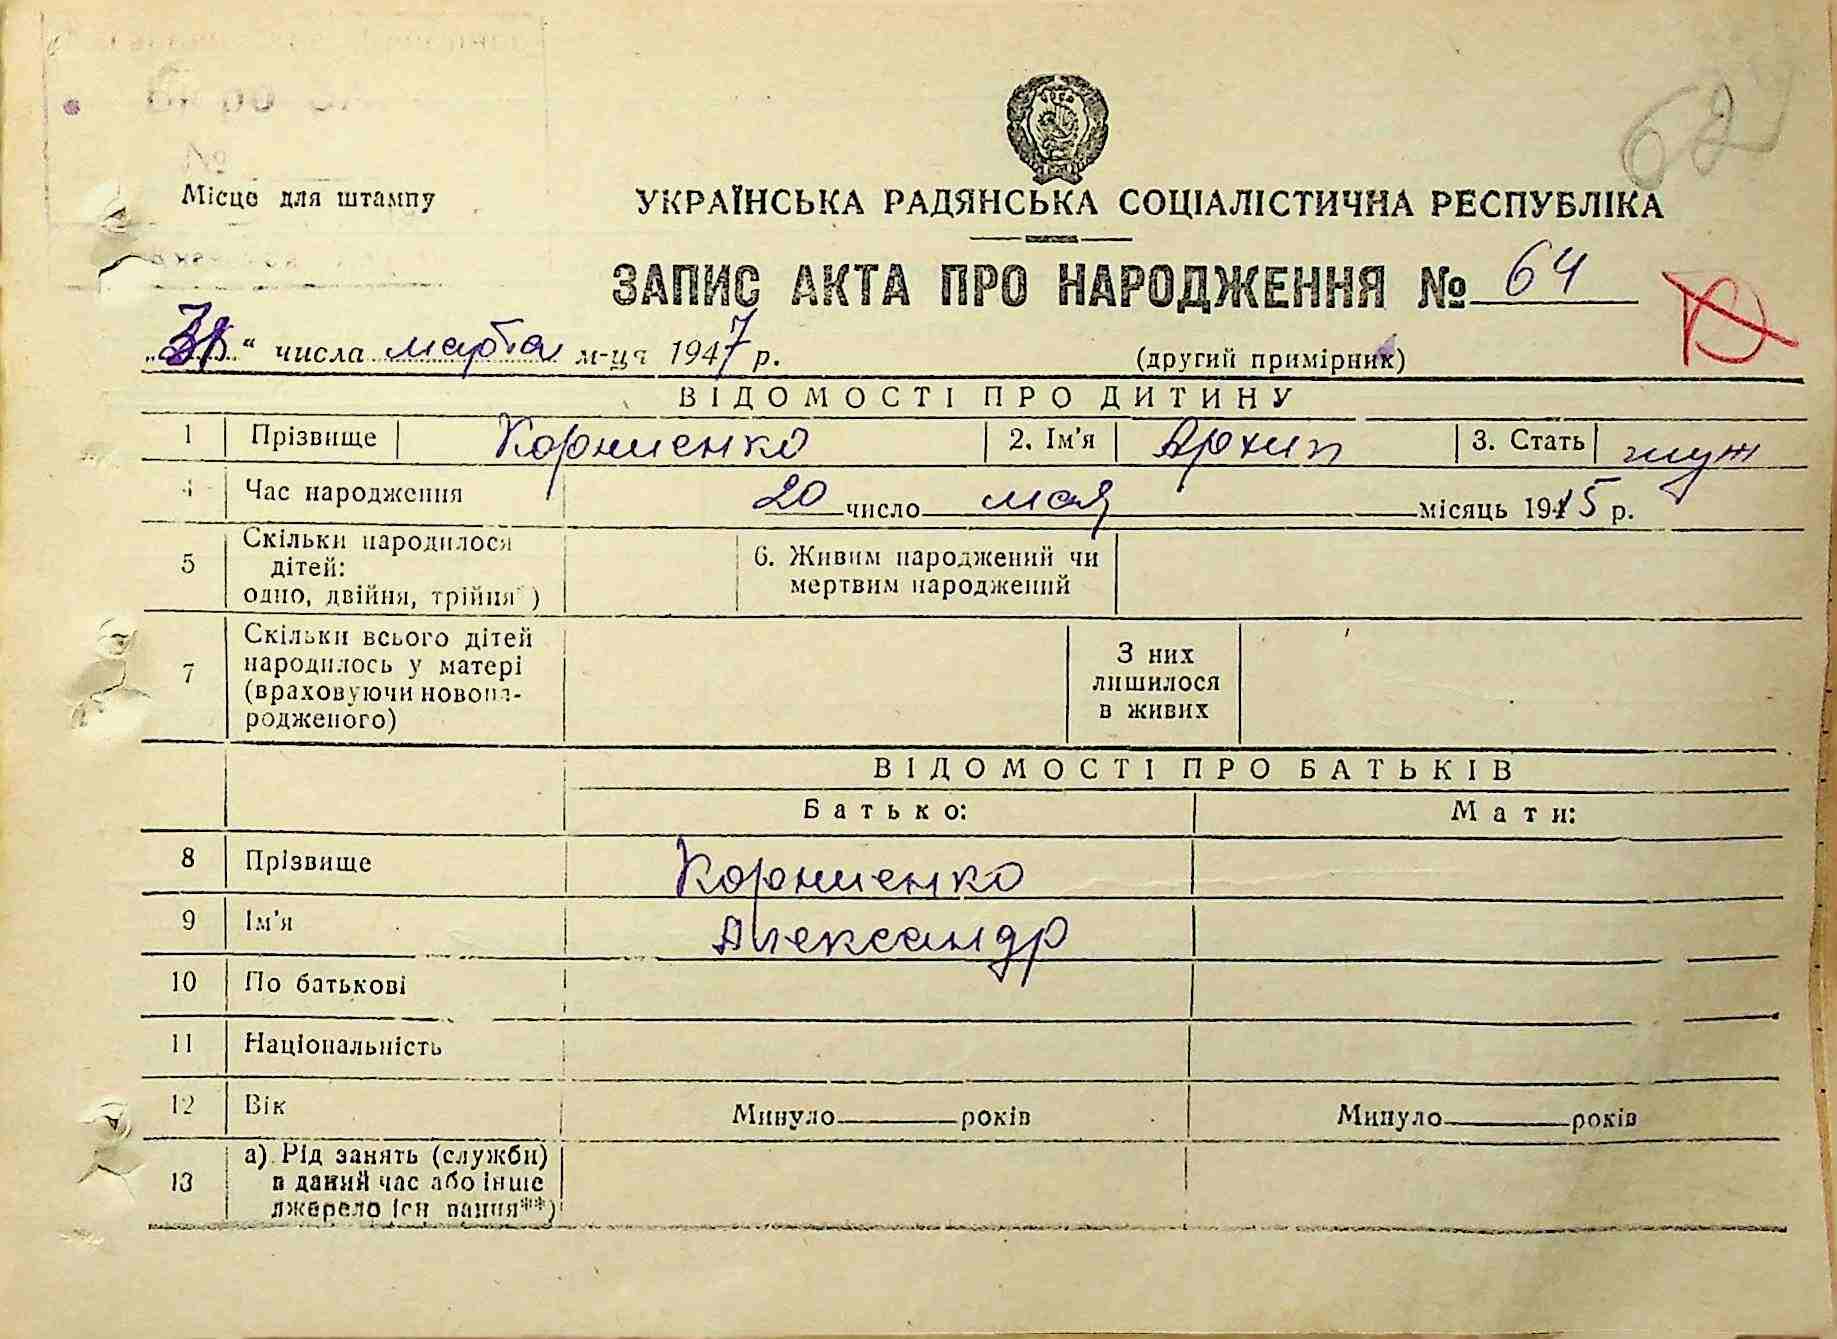 62
Місце для штампу
УКРАЇНСЬКА РАДЯНСЬКА СОЦІАЛІСТИЧНА РЕСПУБЛІКА
ЗАПИС АКТА ПРО НАРОДЖЕННЯ № 64
„31“ числа марта м-ця 1947 р.
(другий примірник)
ВІДОМОСТІ ПРО ДИТИНУ
1 Прізвище Корниенко 2. Ім'я Архип 3. Стать муж
4 Час народження 20 число мая місяць 1915 р.
5 Скільки народилося
дітей:
одно, двійня, трійня*)
6. Живим народжений чи
мертвим народжений
7 Скільки всього дітей
народилось у матері
(враховуючи новона-
родженого)
З них
лишилося
в живих
ВІДОМОСТІ ПРО БАТЬКІВ
Батько: Мати:
8 Прізвище Корниенко
9 Ім'я Александр
10 По батькові
11 Національність
12 Вік Минуло років Минуло років
13 а) Рід занять (служби)
в даний час або інше
джерело існ вання**)